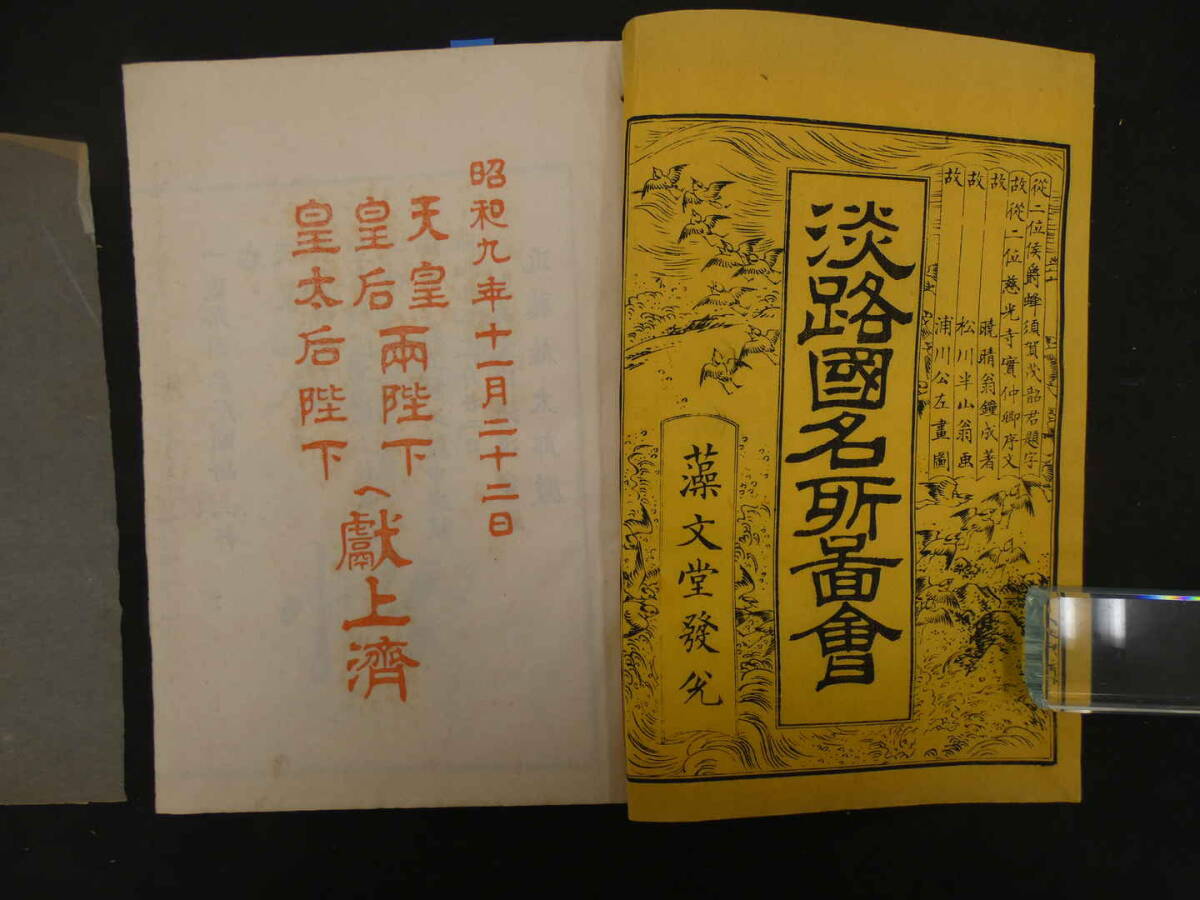 從二位侯爵蜂須賀茂韶君題字
故從二位慈光寺實仲卿序文
故 曉晴翁鐘成著
故 松川半山翁画
浦川公左畫圖
淡路國名所圖會
藻文堂發兌
昭和九年十一月二十二日
天皇
皇后 兩陛下
皇太后陛下
へ獻上濟